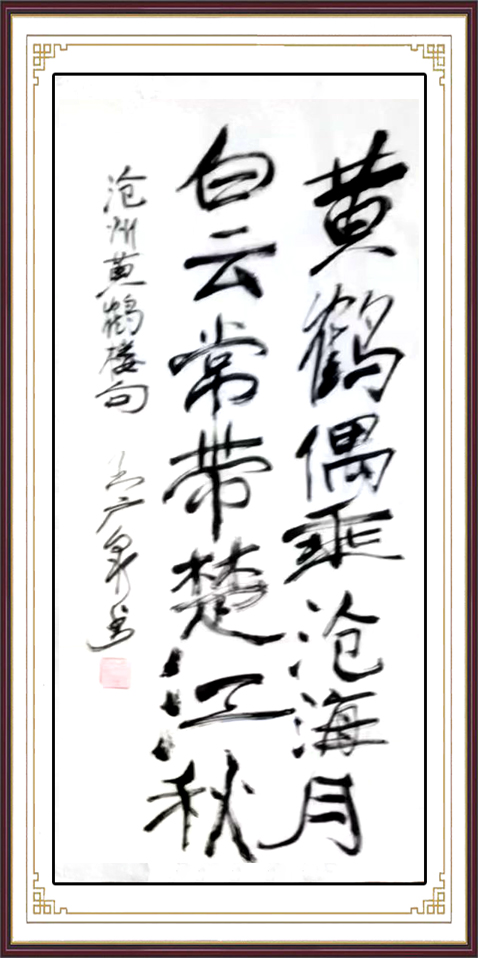 黄鹤偶乘沧海月
白云常带楚江秋
沧州黄鹤楼句
广泉书